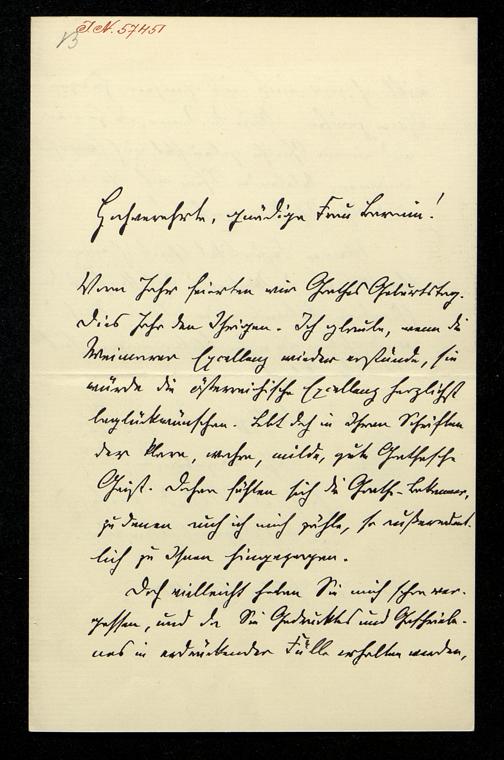 J.N. 57451
Hochverehrte, gnädige Frau Baronin!
Vorm Jahr feierten wir Goethes Geburtstag.
Dies Jahr den Ihrigen. Ich glaube, wenn die
Weimarer Excellenz wieder erstünde, sie
würde die österreichische Excellenz herzlichst
beglückwünschen. Lebt doch in Ihren Schriften
der klare, wahre, milde, gute Goethesche
Geist. Daher fühlen sich die Goethe-Bekenner,
zu denen auch ich mich zähle, so außerordent-
lich zu Ihnen hingezogen.
Doch vielleicht haben Sie mich schon ver-
gessen, und da Sie Gedrucktes und Geschriebe-
nes in erdrückender Fülle erhalten werden,